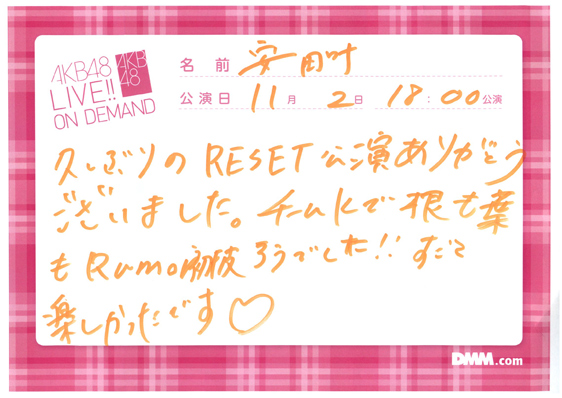 AKB48
LIVE!!
ON DEMAND
AKB
48
名前 安田叶
公演日 11月 2日 18:00公演
久しぶりの RESET 公演ありがとう
ございました。チームKで 根も葉
もRumor初披ろうでした!! すごく
楽しかったです♡
DMM.com